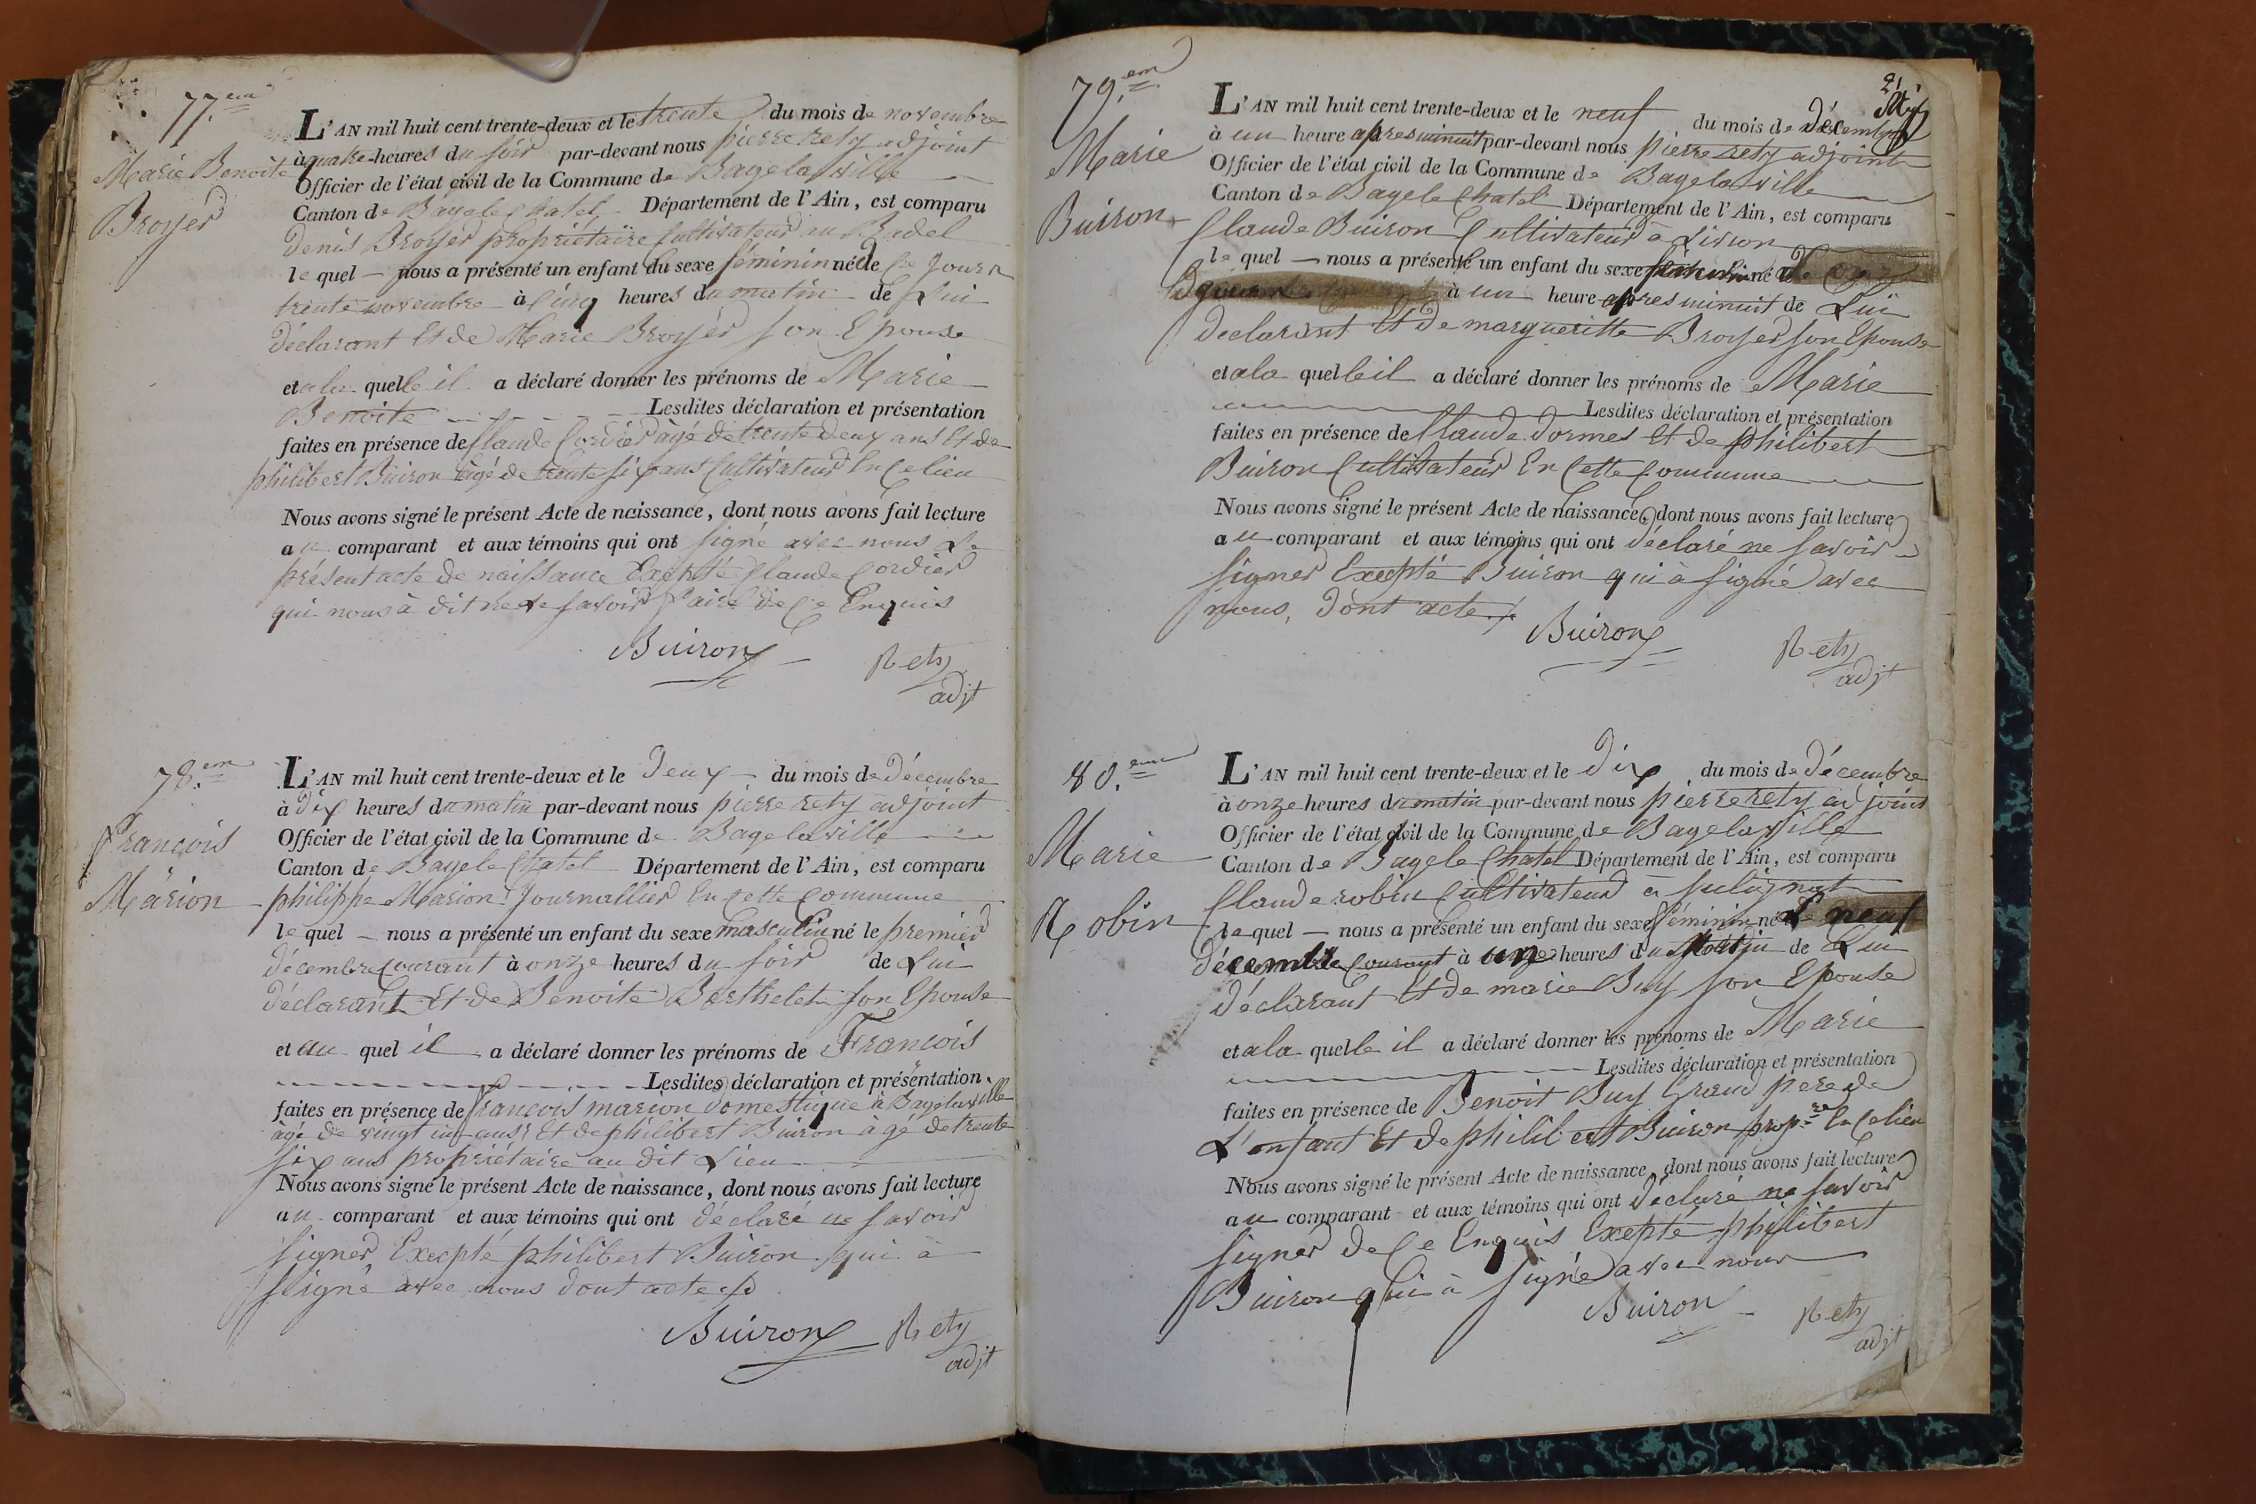 77.em
Marie Benoite
Broyer
L'AN mil huit cent trente-deux et le trente du mois de novembre
à quatre heures du soir par-devant nous pierre rety adjoint
Officier de l'état civil de la Commune de Bagelaville
Canton de Bagele Chatel Département de l'Ain, est comparu
Denis Broyer propriétaire Cultivateur au Badel
le quel — nous a présenté un enfant du sexe féminin né de Ce Jour
trente novembre à Cinq heures du matin de Lui
déclarant Et de Marie Broyer son Epouse
et a la quelle il a déclaré donner les prénoms de Marie
Benoite Lesdites déclaration et présentation
faites en présence de Claude Cordier âgé de trente deux ans Et de
philibert Buiron âgé de trente six ans Cultivateur En Ce lieu
Nous avons signé le présent Acte de naissance, dont nous avons fait lecture
au comparant et aux témoins qui ont signé avec nous Le
présent acte de naissance Excepté Claude Cordier
qui nous à dit ne le savoir faire de Ce Enquis
Buiron
Rety
adjt
78.em
François
Marion
L'AN mil huit cent trente-deux et le Deux du mois de Décembre
à Dix heures du matin par-devant nous pierre rety adjoint
Officier de l'état civil de la Commune de Bagelaville
Canton de Bagele Chatel Département de l'Ain, est comparu
philippe Marion Journallier En Cette Commune
le quel — nous a présenté un enfant du sexe masculin né le premier
décembre Courant à onze heures du soir de Lui
déclarant Et de Benoite Berthelet son Epouse
et au quel il a déclaré donner les prénoms de François
Lesdites déclaration et présentation
faites en présence de françois marion Domestique à Bagelaville
âgé de vingt un ans Et de philibert Buiron âgé de trente
six ans propriétaire au dit Lieu
Nous avons signé le présent Acte de naissance, dont nous avons fait lecture
au comparant et aux témoins qui ont déclaré ne savoir
signer Execpté philibert Buiron qui à
signé avec nous dont acte
Buiron
Rety
adjt
21
79.em
Marie
Buiron
L'AN mil huit cent trente-deux et le neuf du mois de décembre
à un heure apres minuit par-devant nous pierre rety adjoint
Officier de l'état civil de la Commune de Bagelaville
Canton de Bagele Chatel Département de l'Ain, est comparu
Claude Buiron Cultivateur à
le quel — nous a présenté un enfant du sexe né
à un heure apres minuit de Lui
déclarant Et de margueritte Broyer son Epouse
et a la quelle il a déclaré donner les prénoms de Marie
Lesdites déclaration et présentation
faites en présence de Claude Dormes Et de philibert
Buiron Cultivateur En Cette Commune
Nous avons signé le présent Acte de naissance, dont nous avons fait lecture
au comparant et aux témoins qui ont déclaré ne savoir
signer Execpté Buiron qui à signé avec
nous, Dont acte
Buiron
Rety
adjt
80.em
Marie
Robin
L'AN mil huit cent trente-deux et le Dix du mois de Décembre
à onze heures du matin par-devant nous pierre rety adjoint
Officier de l'état civil de la Commune de Bagelaville
Canton de Bagele Chatel Département de l'Ain, est comparu
Claude robin Cultivateur à
le quel — nous a présenté un enfant du sexe féminin né Le neuf
décembre Courant à un heures du matin de Lui
déclarant Et de marie Buy son Epouse
et a la quelle il a déclaré donner les prénoms de Marie
Lesdites déclaration et présentation
faites en présence de Benoit Buy Grand pere de
L'enfant Et de philibert Buiron propre En Ce lieu
Nous avons signé le présent Acte de naissance, dont nous avons fait lecture
au comparant et aux témoins qui ont déclaré ne savoir
signer de Ce Enquis Exepté philibert
Buiron qui à signé avec nous
Buiron
Rety
adjt